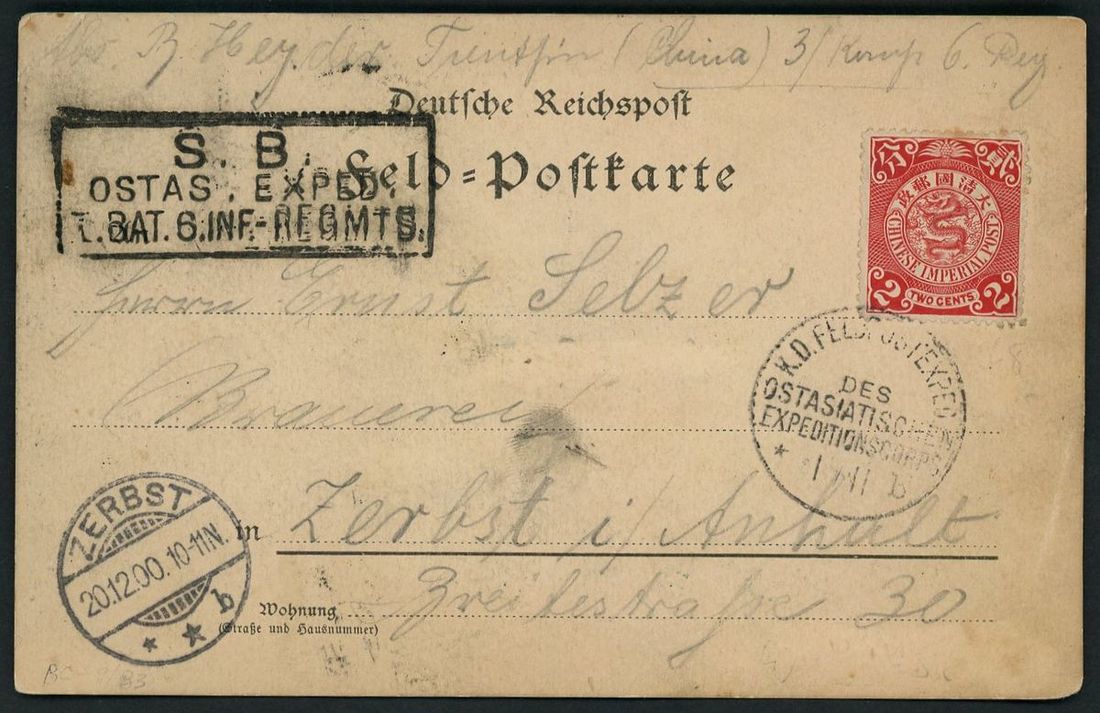 Abs. R. Heyder Tientsin (China) 3/ Komp 6. Reg
Deutsche Reichspost
Feld-Postkarte
S. B.
OSTAS. EXPED.
BAT. 6. INF.-REGMTS.
分 貳
大清國郵政
CHINESE IMPERIAL POST
2 TWO CENTS 2
Herrn Ernst Selzer
K.D. FELDPOSTEXPED
DES
OSTASIATISCHEN
EXPEDITIONSCORPS
* 1/11 b
Brauerei
in Zerbst i/ Anhalt
ZERBST
20.12.00. 10-11N.
* * b
Breitestraße 30
Wohnung
(Straße und Hausnummer)